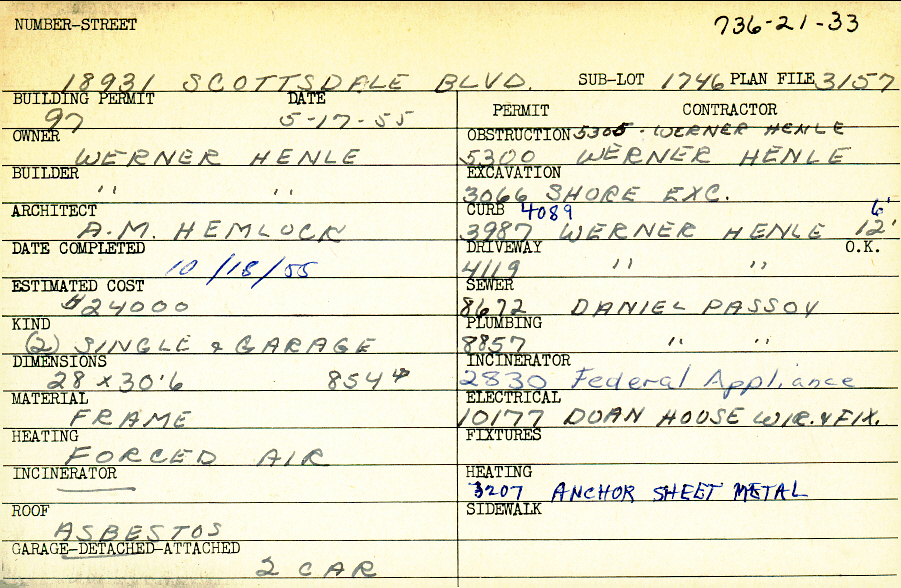 NUMBER-STREET 736-21-33
18931 SCOTTSDALE BLVD. SUB-LOT 1746 PLAN FILE 3157
BUILDING PERMIT DATE
97 5-17-55
OWNER
WERNER HENLE
BUILDER
" "
ARCHITECT
A.M. HEMLOCK
DATE COMPLETED
10/18/55
ESTIMATED COST
$24000
KIND
(2) SINGLE & GARAGE
DIMENSIONS
28 x 30'6 854#
MATERIAL
FRAME
HEATING
FORCED AIR
INCINERATOR
ROOF
ASBESTOS
GARAGE-DETACHED-ATTACHED
2 CAR
PERMIT CONTRACTOR
OBSTRUCTION 5305 - WERNER HENLE
5300 WERNER HENLE
EXCAVATION
3066 SHORE EXC.
CURB 4089 6'
3987 WERNER HENLE 12'
DRIVEWAY O.K.
4119 " "
SEWER
8672 DANIEL PASSOV
PLUMBING
8857 " "
INCINERATOR
2830 Federal Appliance
ELECTRICAL
10177 DOAN HOUSE WIR. & FIX.
FIXTURES
HEATING
3207 ANCHOR SHEET METAL
SIDEWALK